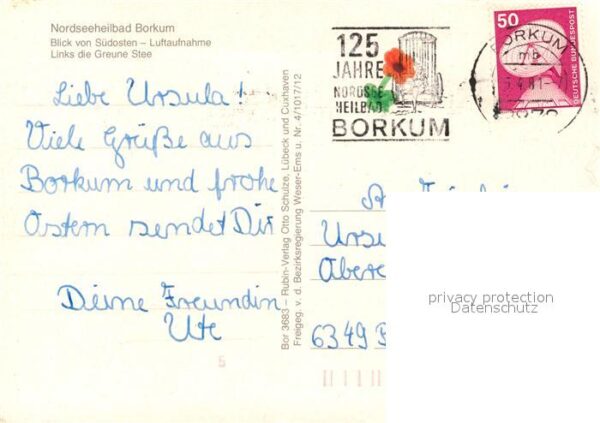 Nordseeheilbad Borkum
Blick von Südosten – Luftaufnahme
Links die Greune Stee
Liebe Ursula!
Viele Grüße aus
Borkum und frohe
Ostern sendet Dir
Deine Freundin
Ute
5
Bor 3683 – Rubin-Verlag Otto Schulze, Lübeck und Cuxhaven
Freigeg. v. d. Bezirksregierung Weser-Ems u. Nr. 4/1017/12
125
JAHRE
NORDSEE
HEILBAD
BORKUM
BORKUM
50
DEUTSCHE BUNDESPOST
6349
privacy protection
Datenschutz